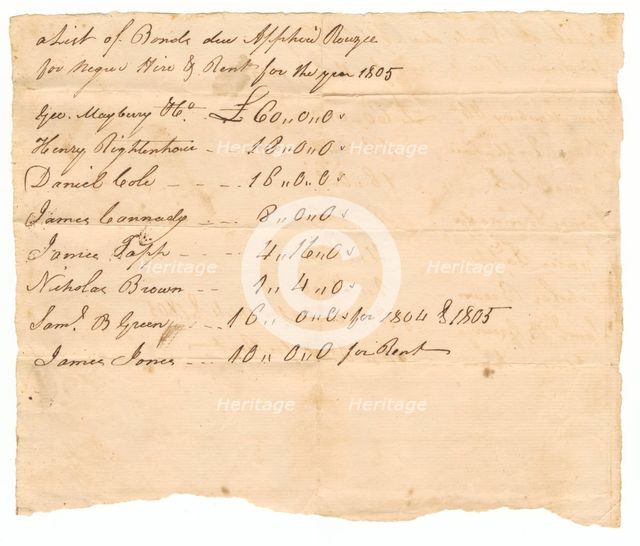 a List of Bonds due Apphia Rouzee
for Negroe Hire & Rent for the year 1805
Geo. Mayberry & Co. - £60,,0,,0s
Henry Rightenhour - 18,,0,,0s
Daniel Cole - - - 16,,0,,0s
James Cannady - - - 8,,0,,0s
James Tapp - - - 4,,16,,0s
Nicholas Brown - - 1,,4,,0s
Saml. B Green - - 16,, 0,,0s for 1804 & 1805
James Jones - - - 10,, 0,,0 for Rent
Heritage
Heritage
Heritage
Heritage
Heritage
Heritage